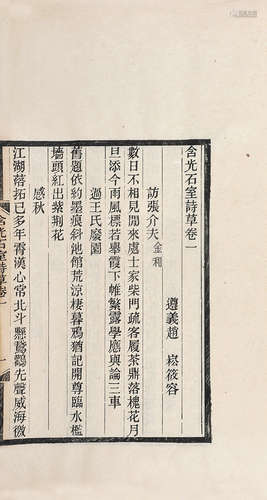 含光石室詩草卷一
遵義趙 崧筱容
訪張介夫金利
數日不相見閒來處士家柴門疏客履茶鼎落槐花月
旦添今雨風標若舉霞下帷繁露學應與論三車
過王氏廢園
舊題依約墨痕斜池館荒涼棲暮鴉猶記開尊臨水檻
墻頭紅出紫荆花
感秋
江湖落拓已多年霄漢心常北斗懸鶖鸛先聲威海徼
含光石室詩草卷一
一